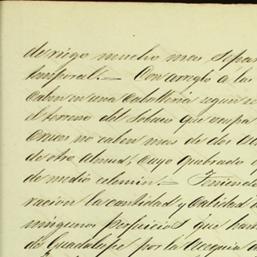 de riego mucho mas separ
temporal. — Con arreglo á las
caben en una Caballeria segun
el terreno del Sobaco que ocupa
cruces no caben mas de dos
de otro Almud, cuyo quebrado
de medio celemin. — Teniendo
racion la cantidad y calidad
ningunos perjuicios que han
de Guadalupe por la Acequia